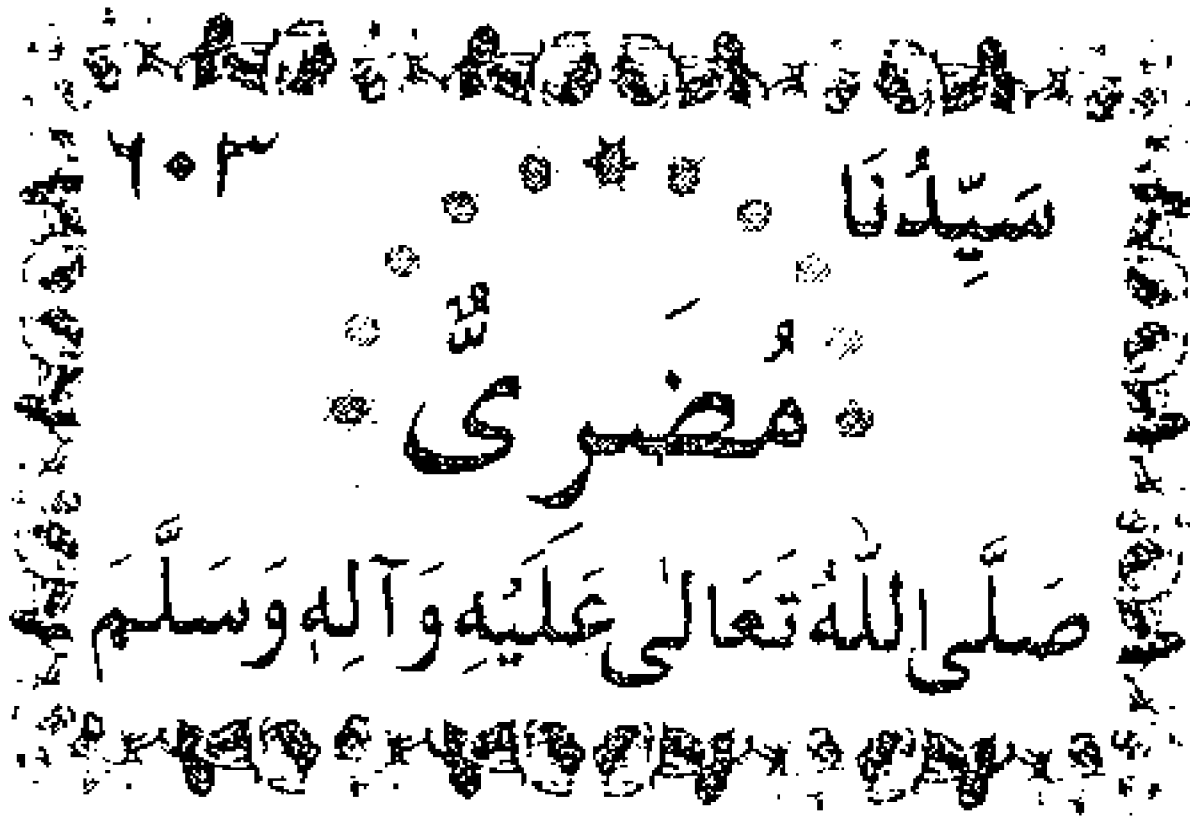 سَيِّدُنَا ٦٠٣
مُضَرِىٌّ
صَلَّى اللّٰهُ تَعَالٰى عَلَيْهِ وَآلِهٖ وَسَلَّمَ